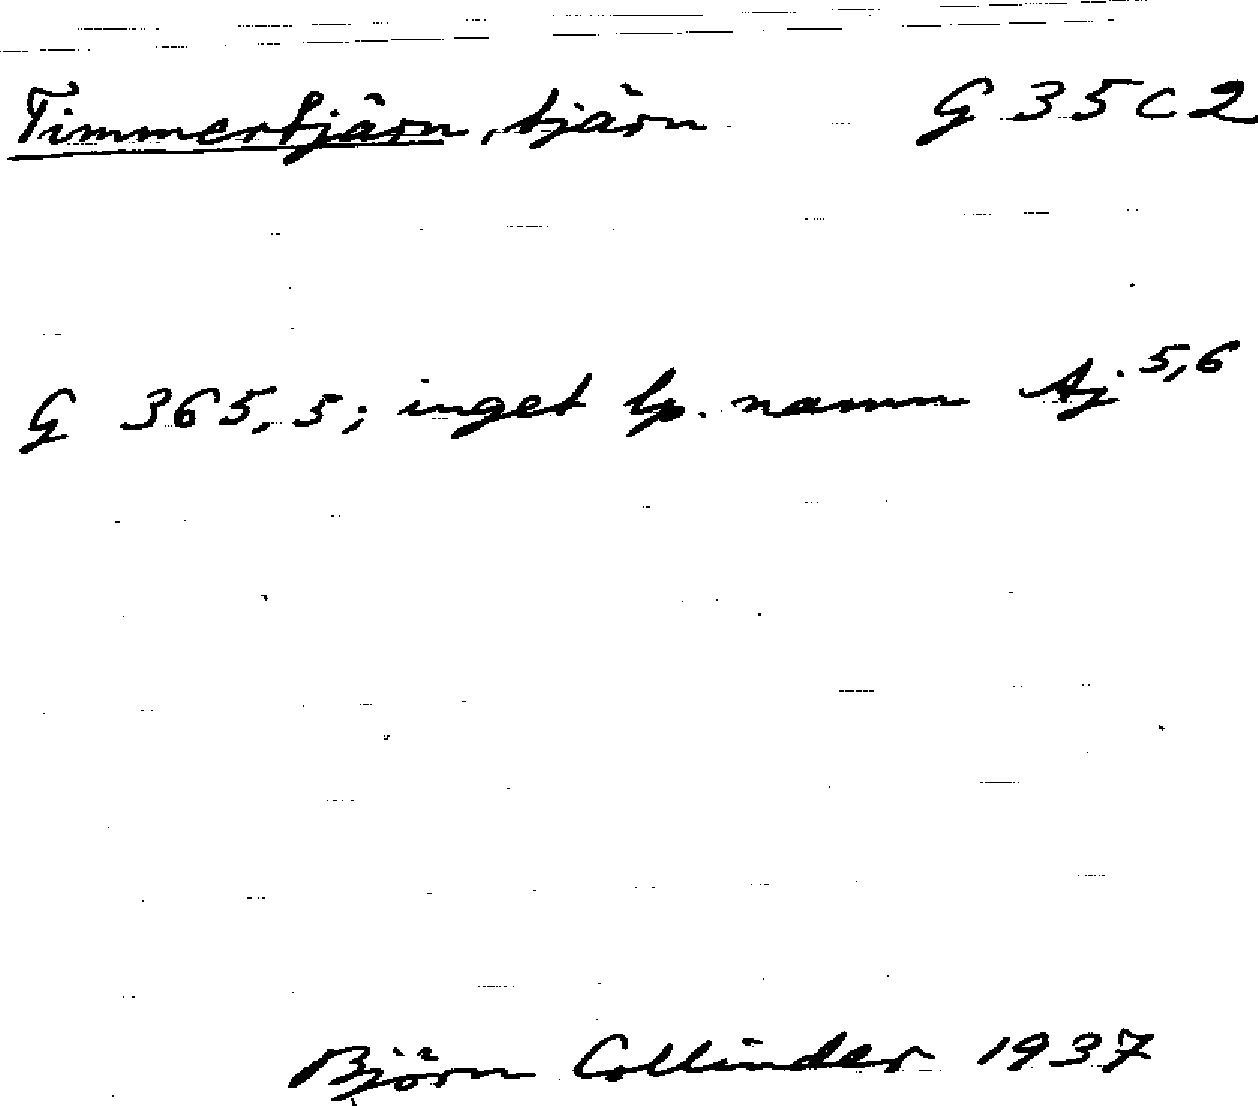 Timmertjärn, tjärn G 35 C 2
G 365,5; inget lp. namn Aj. 5,6
Björn Collinder 1937